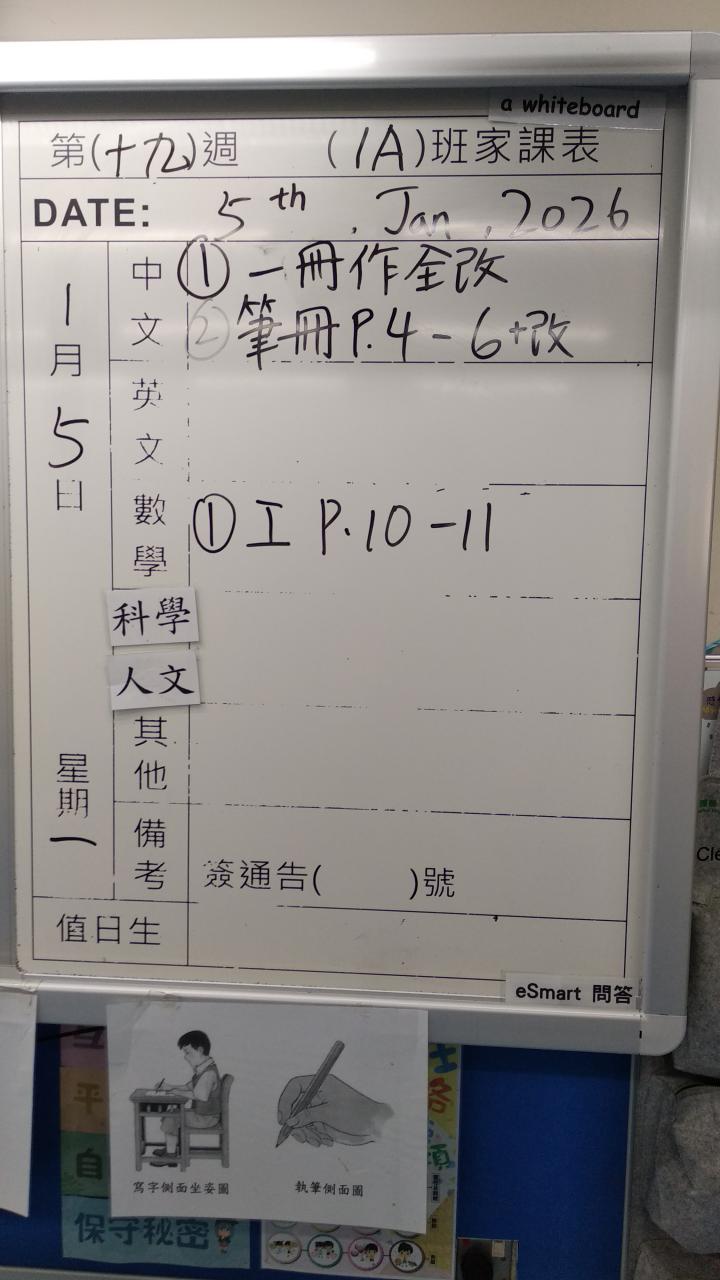 a whiteboard
第(十九)週 (1A)班家課表
DATE: 5th, Jan, 2026
1月5日
星期一
中文 ① 一冊作全改
② 筆冊P.4-6+改
英文
數學 ① 工 P.10-11
科學
人文
其他
備考 簽通告( )號
值日生
eSmart 問答
寫字側面坐姿圖
執筆側面圖
平
自
保守秘密